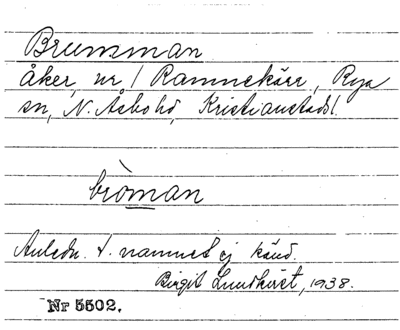 Brumman
åker, nr 1 Ramnekärr, Rya
sn, N. Åsbo hd, Kristianstads l.
bròman
Anledn. t. namnet ej känd.
Birgit Lundkvist, 1938.
Nr 5502.